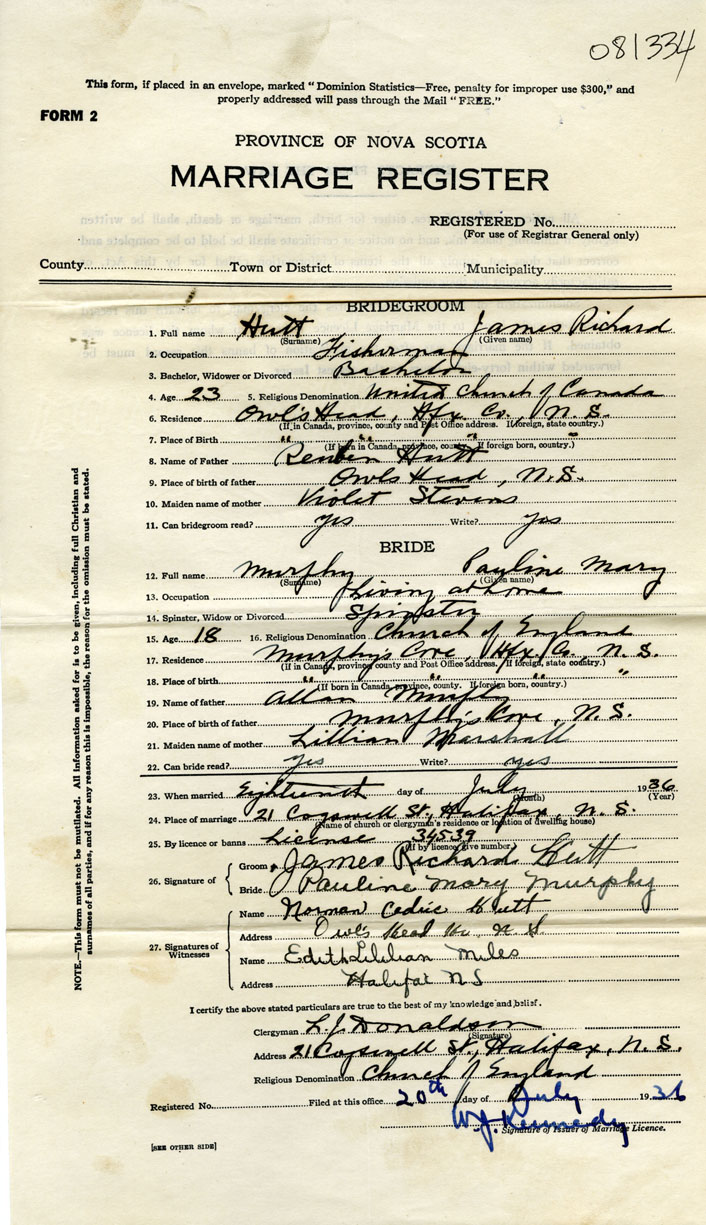 081334
This form, if placed in an envelope, marked "Dominion Statistics—Free, penalty for improper use $300," and
properly addressed will pass through the Mail "FREE."
FORM 2
PROVINCE OF NOVA SCOTIA
MARRIAGE REGISTER
REGISTERED No.
(For use of Registrar General only)
County Town or District Municipality
BRIDEGROOM
1. Full name Hutt James Richard
(Surname) (Given name)
2. Occupation Fisherman
3. Bachelor, Widower or Divorced Bachelor
4. Age 23 5. Religious Denomination United Church of Canada
6. Residence Owl's Head, Hfx. Co., N. S.
(If in Canada, province, county and Post Office address. If foreign, state country.)
7. Place of Birth " " " "
(If born in Canada, province, county. If foreign born, country.)
8. Name of Father Reuben Hutt
9. Place of birth of father Owls Head, N.S.
10. Maiden name of mother Violet Stevens
11. Can bridegroom read? yes Write? yes
BRIDE
12. Full name Murphy Pauline Mary
(Surname) (Given name)
13. Occupation Living at home
14. Spinster, Widow or Divorced Spinster
15. Age 18 16. Religious Denomination Church of England
17. Residence Murphy's Cove, Hfx. Co., N. S.
(If in Canada, province, county and Post Office address. If foreign, state country.)
18. Place of birth " " " "
(If born in Canada, province, county. If foreign born, country.)
19. Name of father Allan Murphy
20. Place of birth of father Murphy's Cove, N. S.
21. Maiden name of mother Lillian Marshall
22. Can bride read? yes Write? yes
23. When married Eighteenth day of July 1936
(Month) (Year)
24. Place of marriage 21 Cogswell St., Halifax, N. S.
(Name of church or clergyman's residence or location of dwelling house)
25. By licence or banns License 34539
(If by licence, give number)
26. Signature of
Groom James Richard Hutt
Bride Pauline Mary Murphy
27. Signatures of
Witnesses
Name Norman Cedric Hutt
Address Owl's Head Hx. N S
Name Edith Lillian Miles
Address Halifax N S
I certify the above stated particulars are true to the best of my knowledge and belief.
Clergyman L. J. Donaldson
(Signature)
Address 21 Cogswell St., Halifax, N. S.
Religious Denomination Church of England
Registered No. Filed at this office 20th day of July 1936
W. J. Kennedy
Signature of Issuer of Marriage Licence.
[SEE OTHER SIDE]
NOTE.—This form must not be mutilated. All information asked for is to be given, including full Christian and
surnames of all parties, and if for any reason this is impossible, the reason for the omission must be stated.